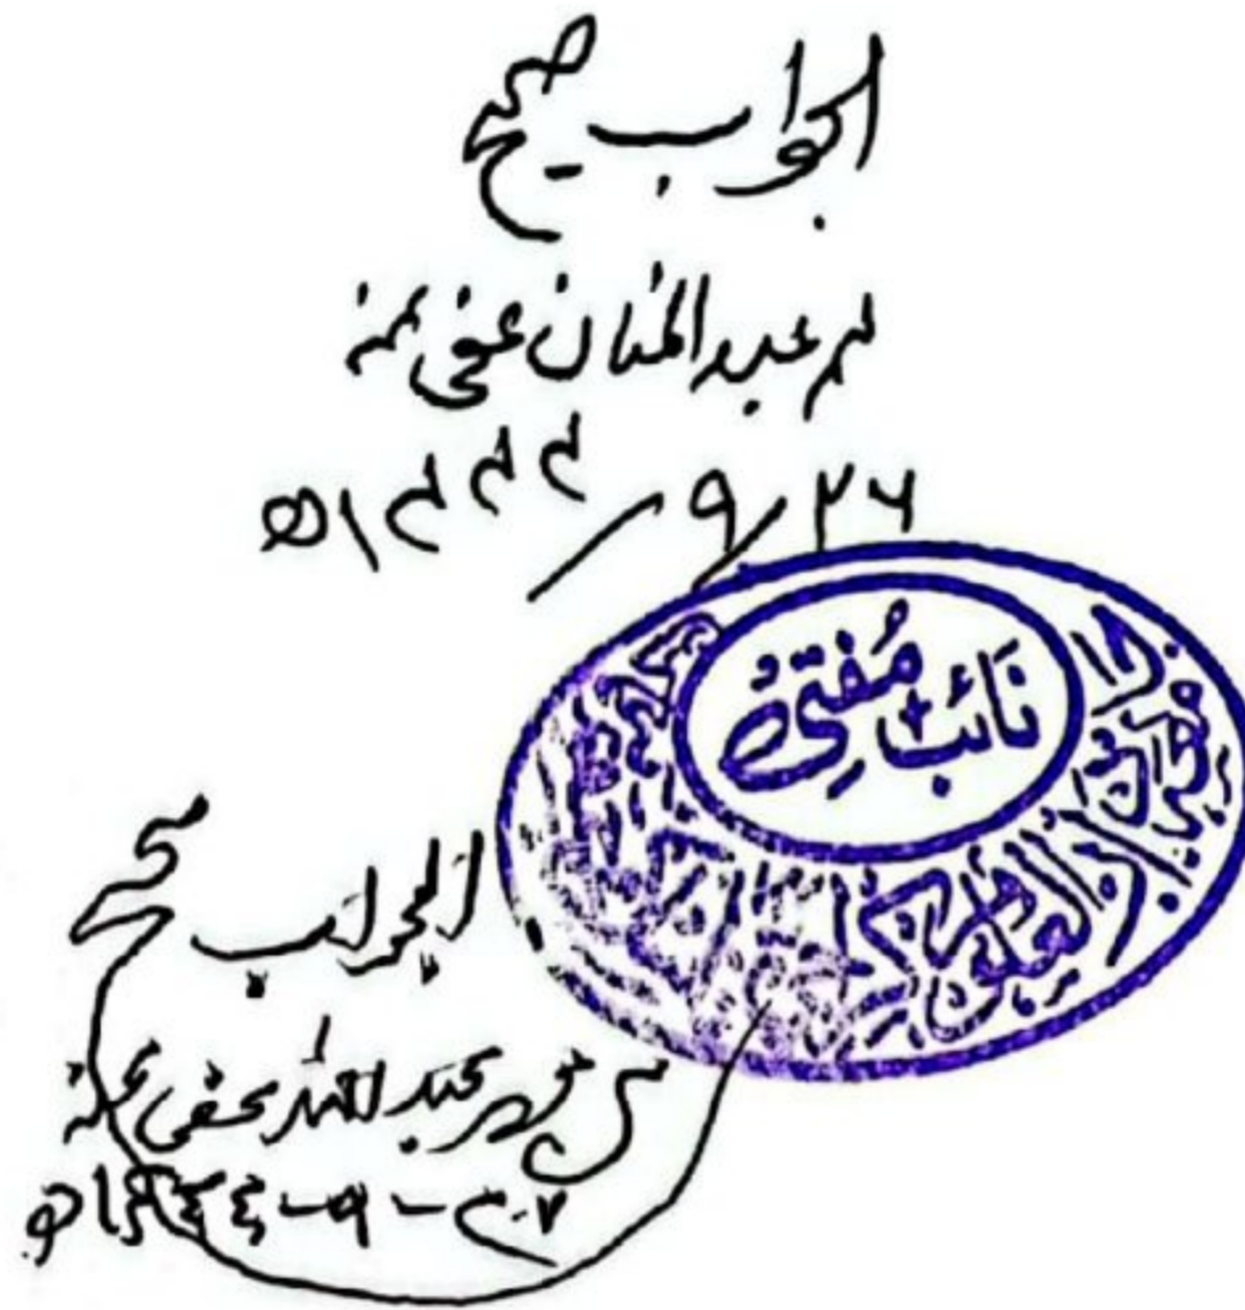 الجواب صحیح
عبد المنان عفی عنہ
۲۶/۹/۱۴۴۴ھ
نَائب مُفتی
دار العلوم
الجواب صحیح
محمد عبد اللہ عفی عنہ
۲۷-۹-۱۴۴۴ھ